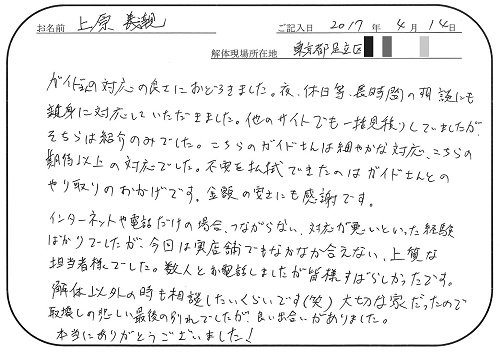 お名前 上原
ご記入日 2017年 4月 14日
解体現場所在地 東京都足立区
ガイドさんの対応の良さにおどろきました。夜、休日等、長時間の相談にも
親身に対応していただきました。他のサイトでも一括見積りしていましたが、
そちらは紹介のみでした。こちらのガイドさんは細やかな対応、こちらの
期待以上の対応でした。不安を払拭できたのはガイドさんとの
やり取りのおかげです。金額の安さにも感謝です。
インターネットや電話だけの場合、つながらない、対応が悪いといった経験
ばかりでしたが、今回は実店舗でもなかなか合えない、上質な
担当者様でした。数人とお電話しましたが皆様すばらしかったです。
解体以外の時も相談したいくらいです(笑) 大切な家だったので
取壊しの悲しい最後の別れでしたが、良い出合いがありました。
本当にありがとうございました!